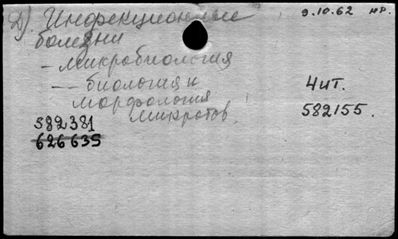 Д) Инфекционные 9.10.62 нр.
болезни
- микробиология
-- биология и 4 ит.
морфология
микробов 582155.
582381
626635